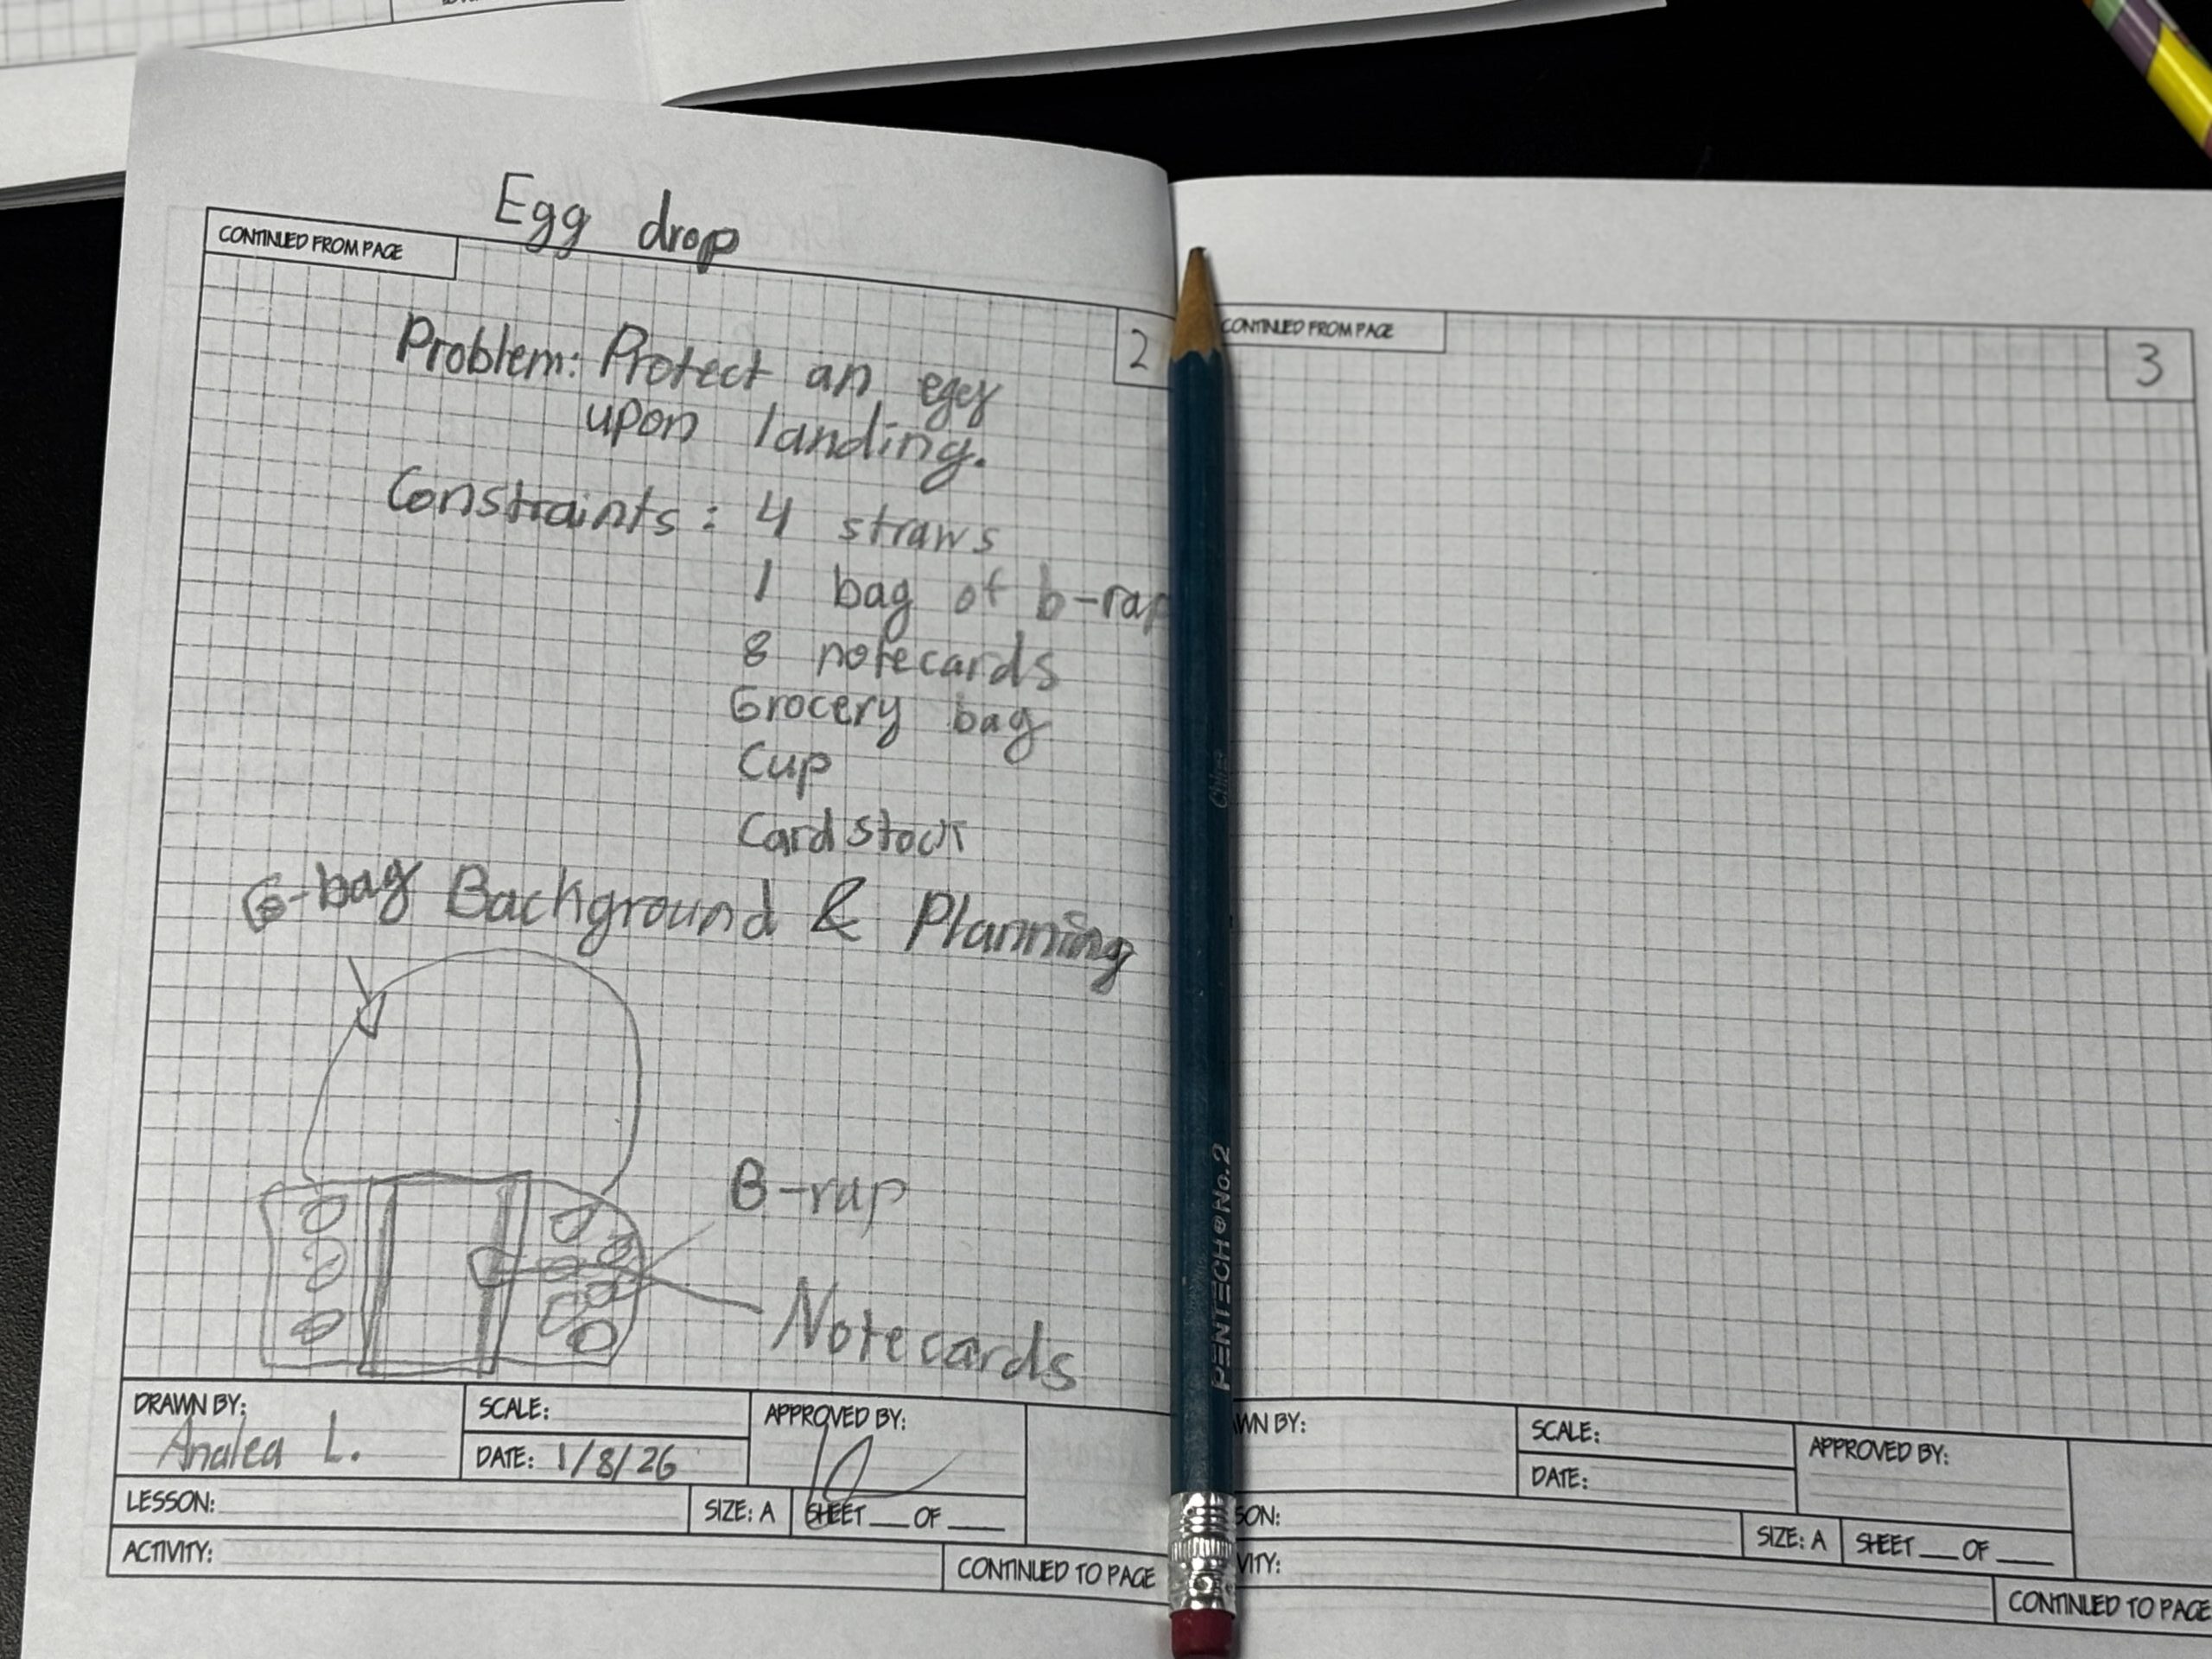 Egg drop
CONTINUED FROM PAGE
2
Problem: Protect an egg
upon landing.
Constraints: 4 straws
1 bag of b-rap
8 notecards
Grocery bag
Cup
Cardstock
G-bag Background & Planning
B-rap
Notecards
DRAWN BY:
Analea L.
SCALE:
DATE: 1/8/26
APPROVED BY:
LESSON:
SIZE: A
SHEET ___ OF ___
ACTIVITY:
CONTINUED TO PAGE
PENTECH No.2
CONTINUED FROM PAGE
3
WN BY:
SCALE:
DATE:
APPROVED BY:
SON:
SIZE: A
SHEET ___ OF ___
VITY:
CONTINUED TO PAGE